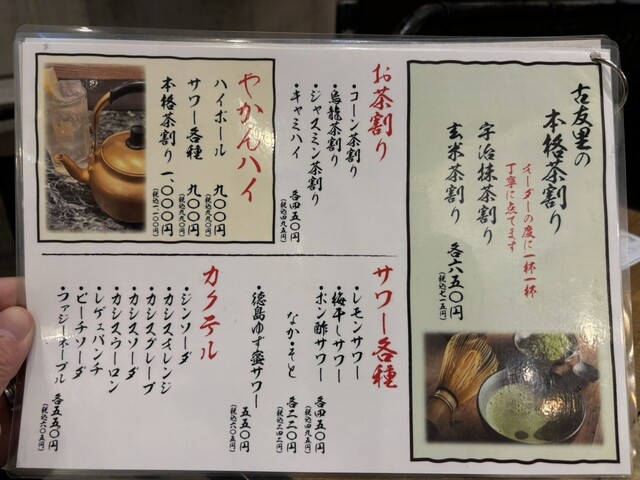 古友里の
本格茶割り
オーダーの度に一杯一杯
丁寧に点てます
宇治抹茶割り
玄米茶割り
各六五〇円
(税込七一五円)
お茶割り
・コーン茶割り
・烏龍茶割り
・ジャスミン茶割り
・キャミハイ
各四五〇円
(税込四九五円)
やかんハイ
ハイボール 九〇〇円
(税込九九〇円)
サワー各種 九〇〇円
(税込九九〇円)
本格茶割り 一、〇〇〇円
(税込一一〇〇円)
サワー各種
・レモンサワー
・梅干しサワー
・ポン酢サワー
各四五〇円
(税込四九五円)
なか・そと 各二二〇円
(税込二四二円)
・徳島ゆず蜜サワー
五五〇円
(税込六〇五円)
カクテル
・ジンソーダ
・カシスオレンジ
・カシスグレープ
・カシスソーダ
・カシスウーロン
・レゲェパンチ
・ピーチソーダ
・ファジーネーブル
各五五〇円
(税込六〇五円)